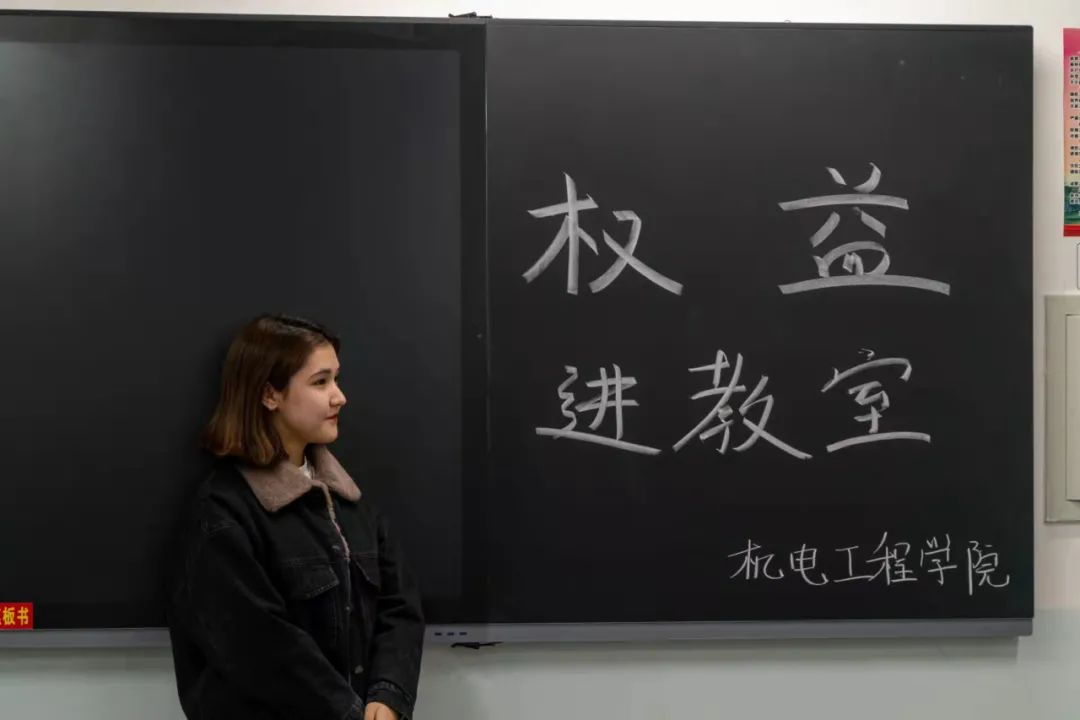 权益
进教室
机电工程学院
板书